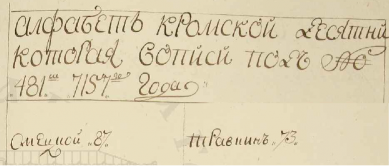 алфабетъ кромской десятни
которая вописи подъ №
481.м 7157.го Года
Смецкой. 87. Травинъ. 73.